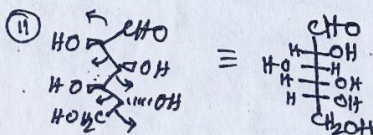 11
CHO
HO
OH
HO
OH
HOH₂C
≡
CHO
H OH
HO H
H OH
H OH
CH₂OH